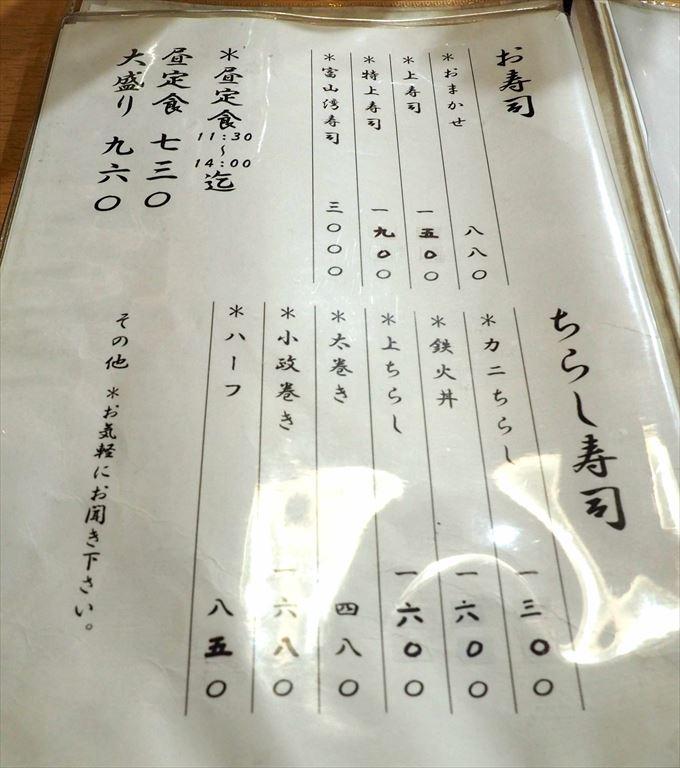 お寿司
＊おまかせ 八八〇
＊上寿司 一五〇〇
＊特上寿司 一九〇〇
＊富山湾寿司 三〇〇〇
＊昼定食 11:30～14:00迄
昼定食 七三〇
大盛り 九六〇
ちらし寿司
＊カニちらし 一三〇〇
＊鉄火丼 一六〇〇
＊上ちらし 一六〇〇
＊太巻き 四八〇
＊小政巻き 一六八〇
＊ハーフ 八五〇
その他 ＊お気軽にお聞き下さい。